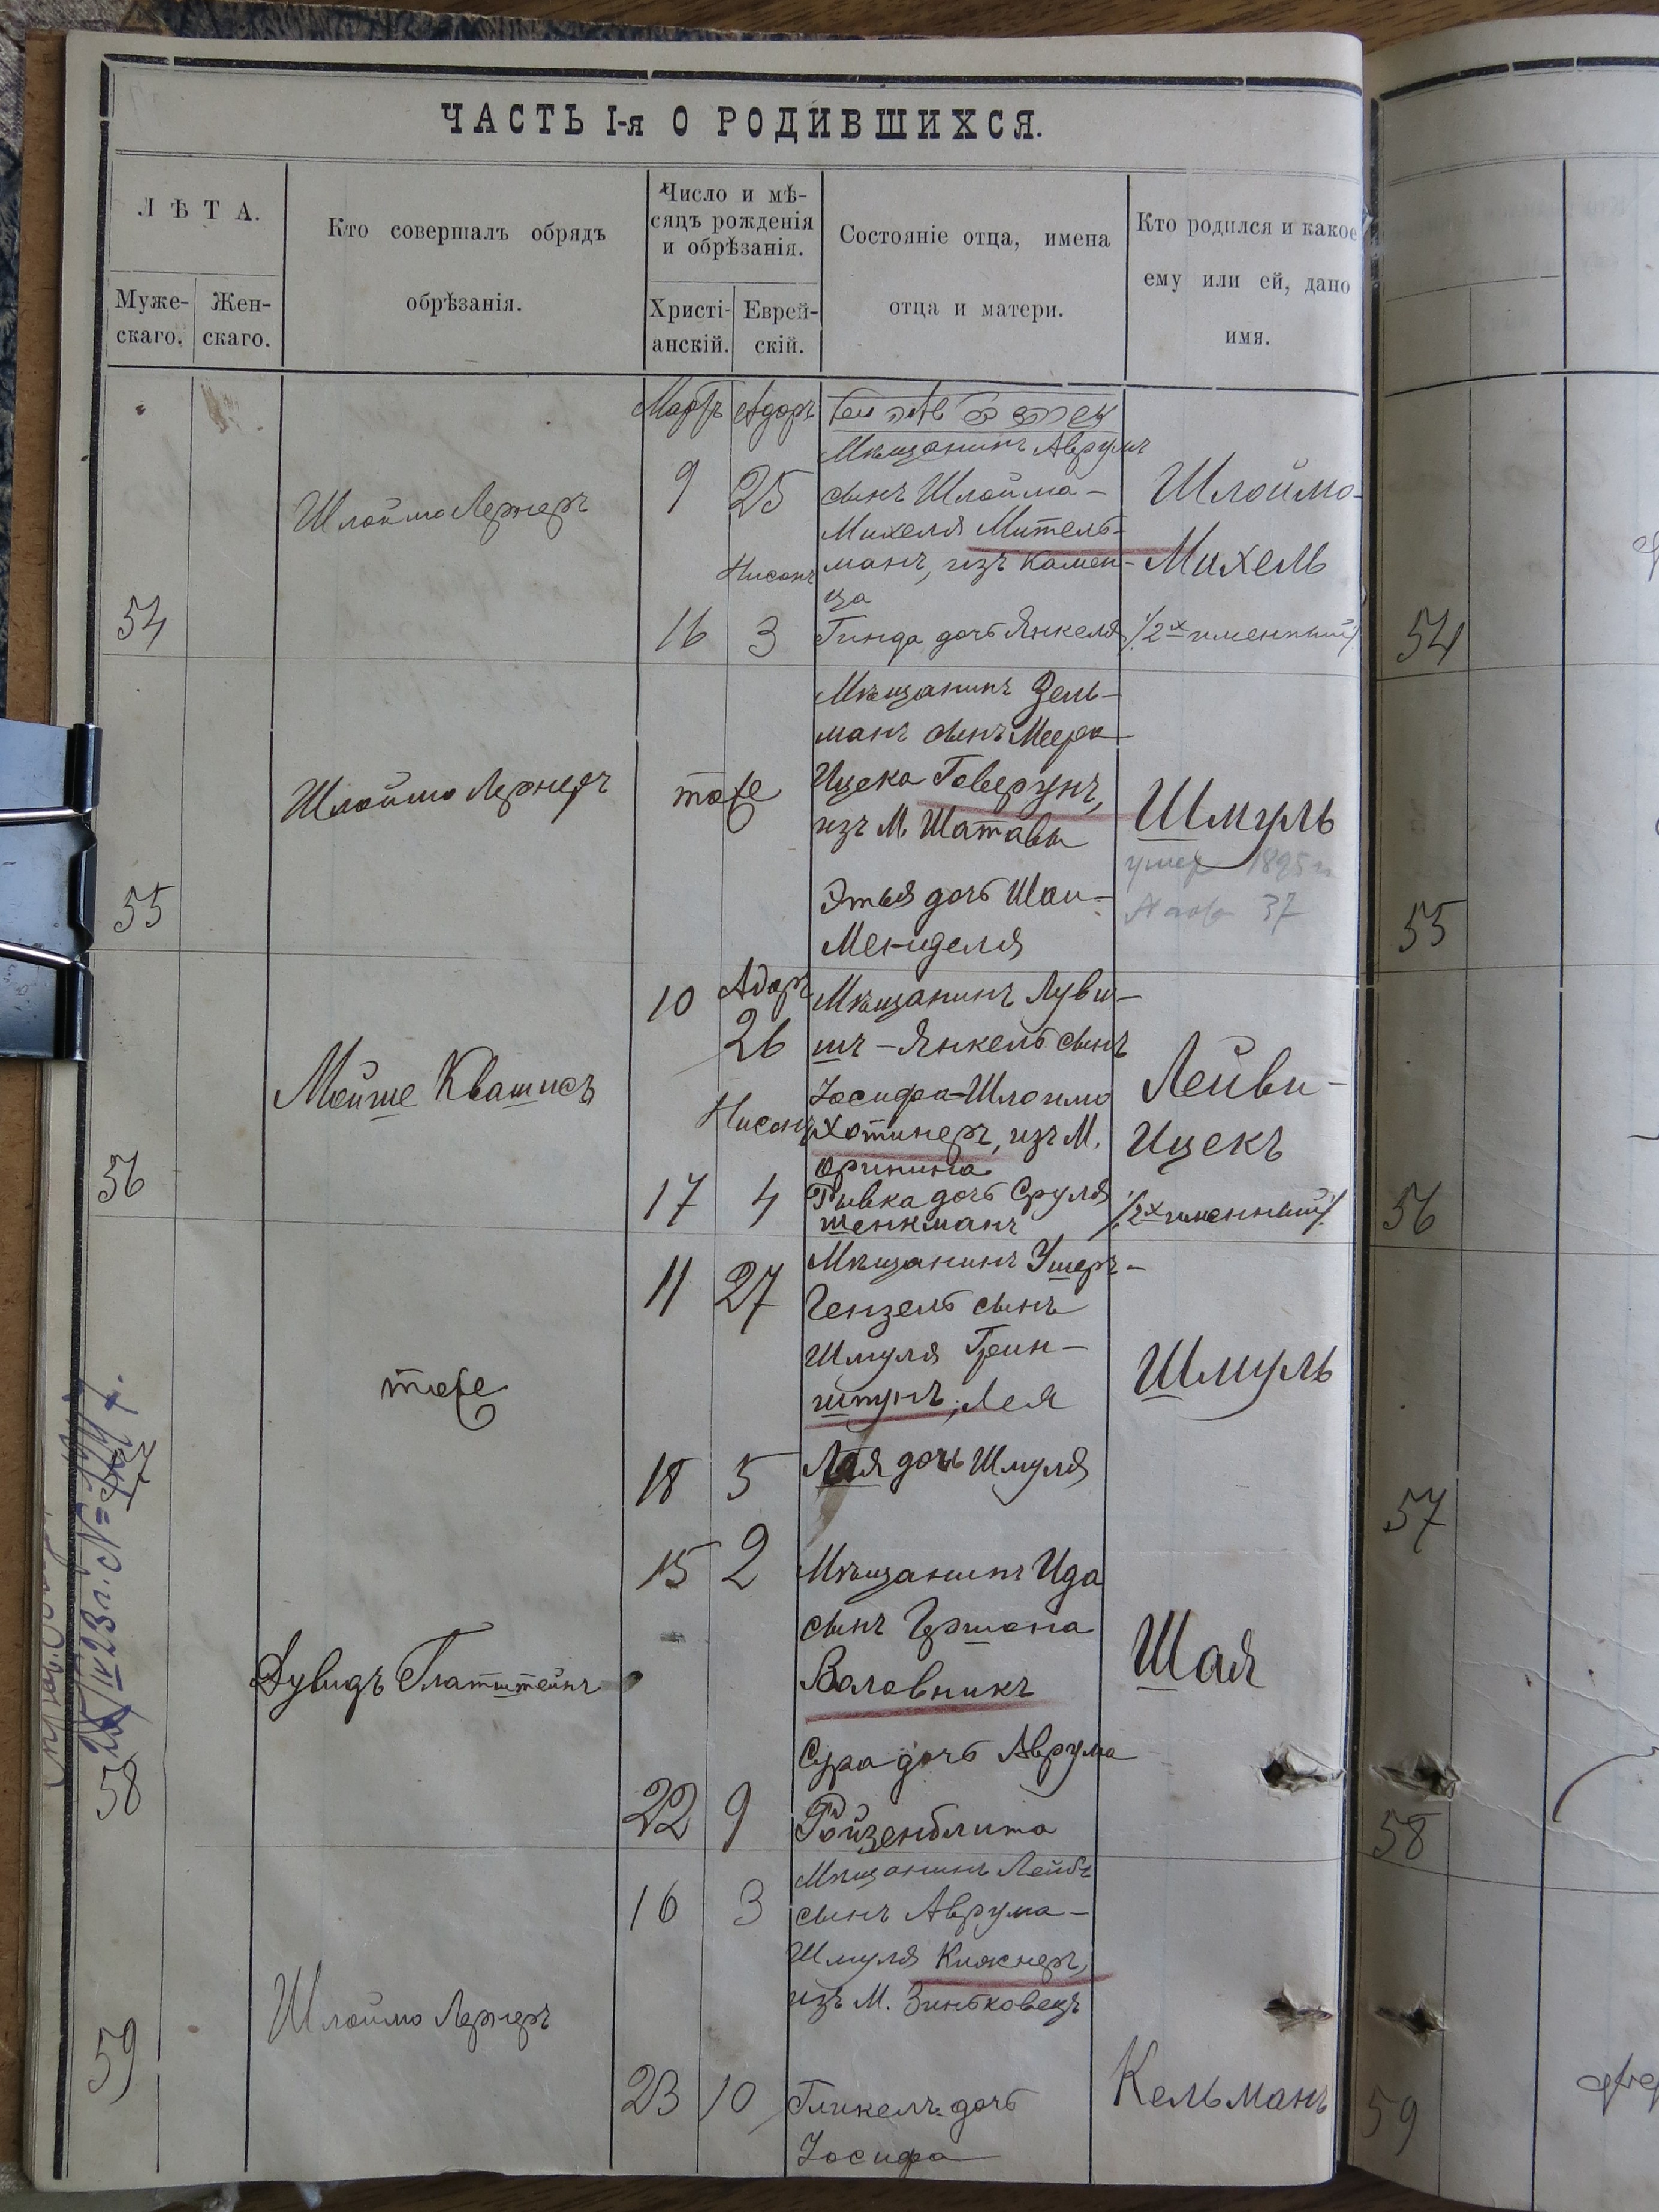 ЧАСТЬ I-я О РОДИВШИХСЯ.
ЛѢТА.
Муже-
скаго.
Жен-
скаго.
Кто совершалъ обрядъ
обрѣзанія.
Число и мѣ-
сяцъ рожденія
и обрѣзанія.
Христі-
анскій.
Еврей-
скій.
Состояніе отца, имена
отца и матери.
Кто родился и какое
ему или ей, дано
имя.
54
Шлойма Лернеръ
Мартъ Адаръ
9 25
Нисанъ
16 3
Мѣщанинъ Аврумъ
сынъ Шлойма-
Михеля Митель-
манъ, изъ Камен-
ца
Гинда дочь Янкеля
Шлойма-
Михель
/2х именный/
54
55
Шлойма Лернеръ
тоже
Мѣщанинъ Зель-
манъ сынъ Меера
Ицека Говерунъ,
изъ М. Шатавы
Этья дочь Шаи-
Менделя
Шмуль
умер 1895 г.
37
55
56
Мойше Квашисъ
10 Адаръ
26
Нисанъ
17 4
Мѣщанинъ Луви-
шъ-Янкель сынъ
Іосифа-Шлоимо
Хотинеръ, изъ М.
Оринина
Рывка дочь Сруля
Шенкманъ
Лейви-
Ицекъ
/2х именный/
56
тоже
11 27
18 5
Мѣщанинъ Ушеръ-
Гензель сынъ
Шмуля Грин-
штунъ, Лея
Лея дочь Шмуля
Шмуль
57
58
Дувидъ Глатштейнъ
15 2
22 9
Мѣщанинъ Ида
сынъ Гершона
Воловникъ
Сура дочь Аврума
Ройзенблита
Шая
58
59
Шлойма Лернеръ
16 3
23 10
Мѣщанинъ Лейбъ
сынъ Аврума-
Шмуля Княжнеръ,
изъ М. Зиньковецъ
Гликель дочь
Іосифа
Кельманъ
59